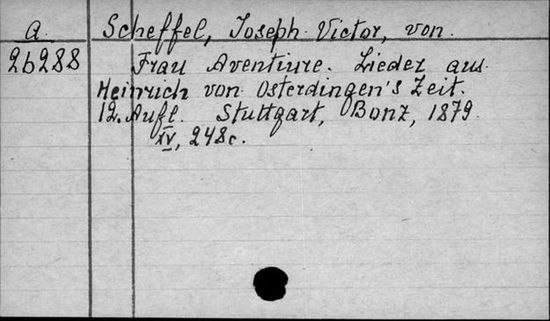 A.
Scheffel, Joseph Victor, von.
26288
Frau Aventiure. Lieder aus
Heinrich von Osterdingen's Zeit.
12. Aufl. Stuttgart, Bonz, 1879.
XV, 248c.